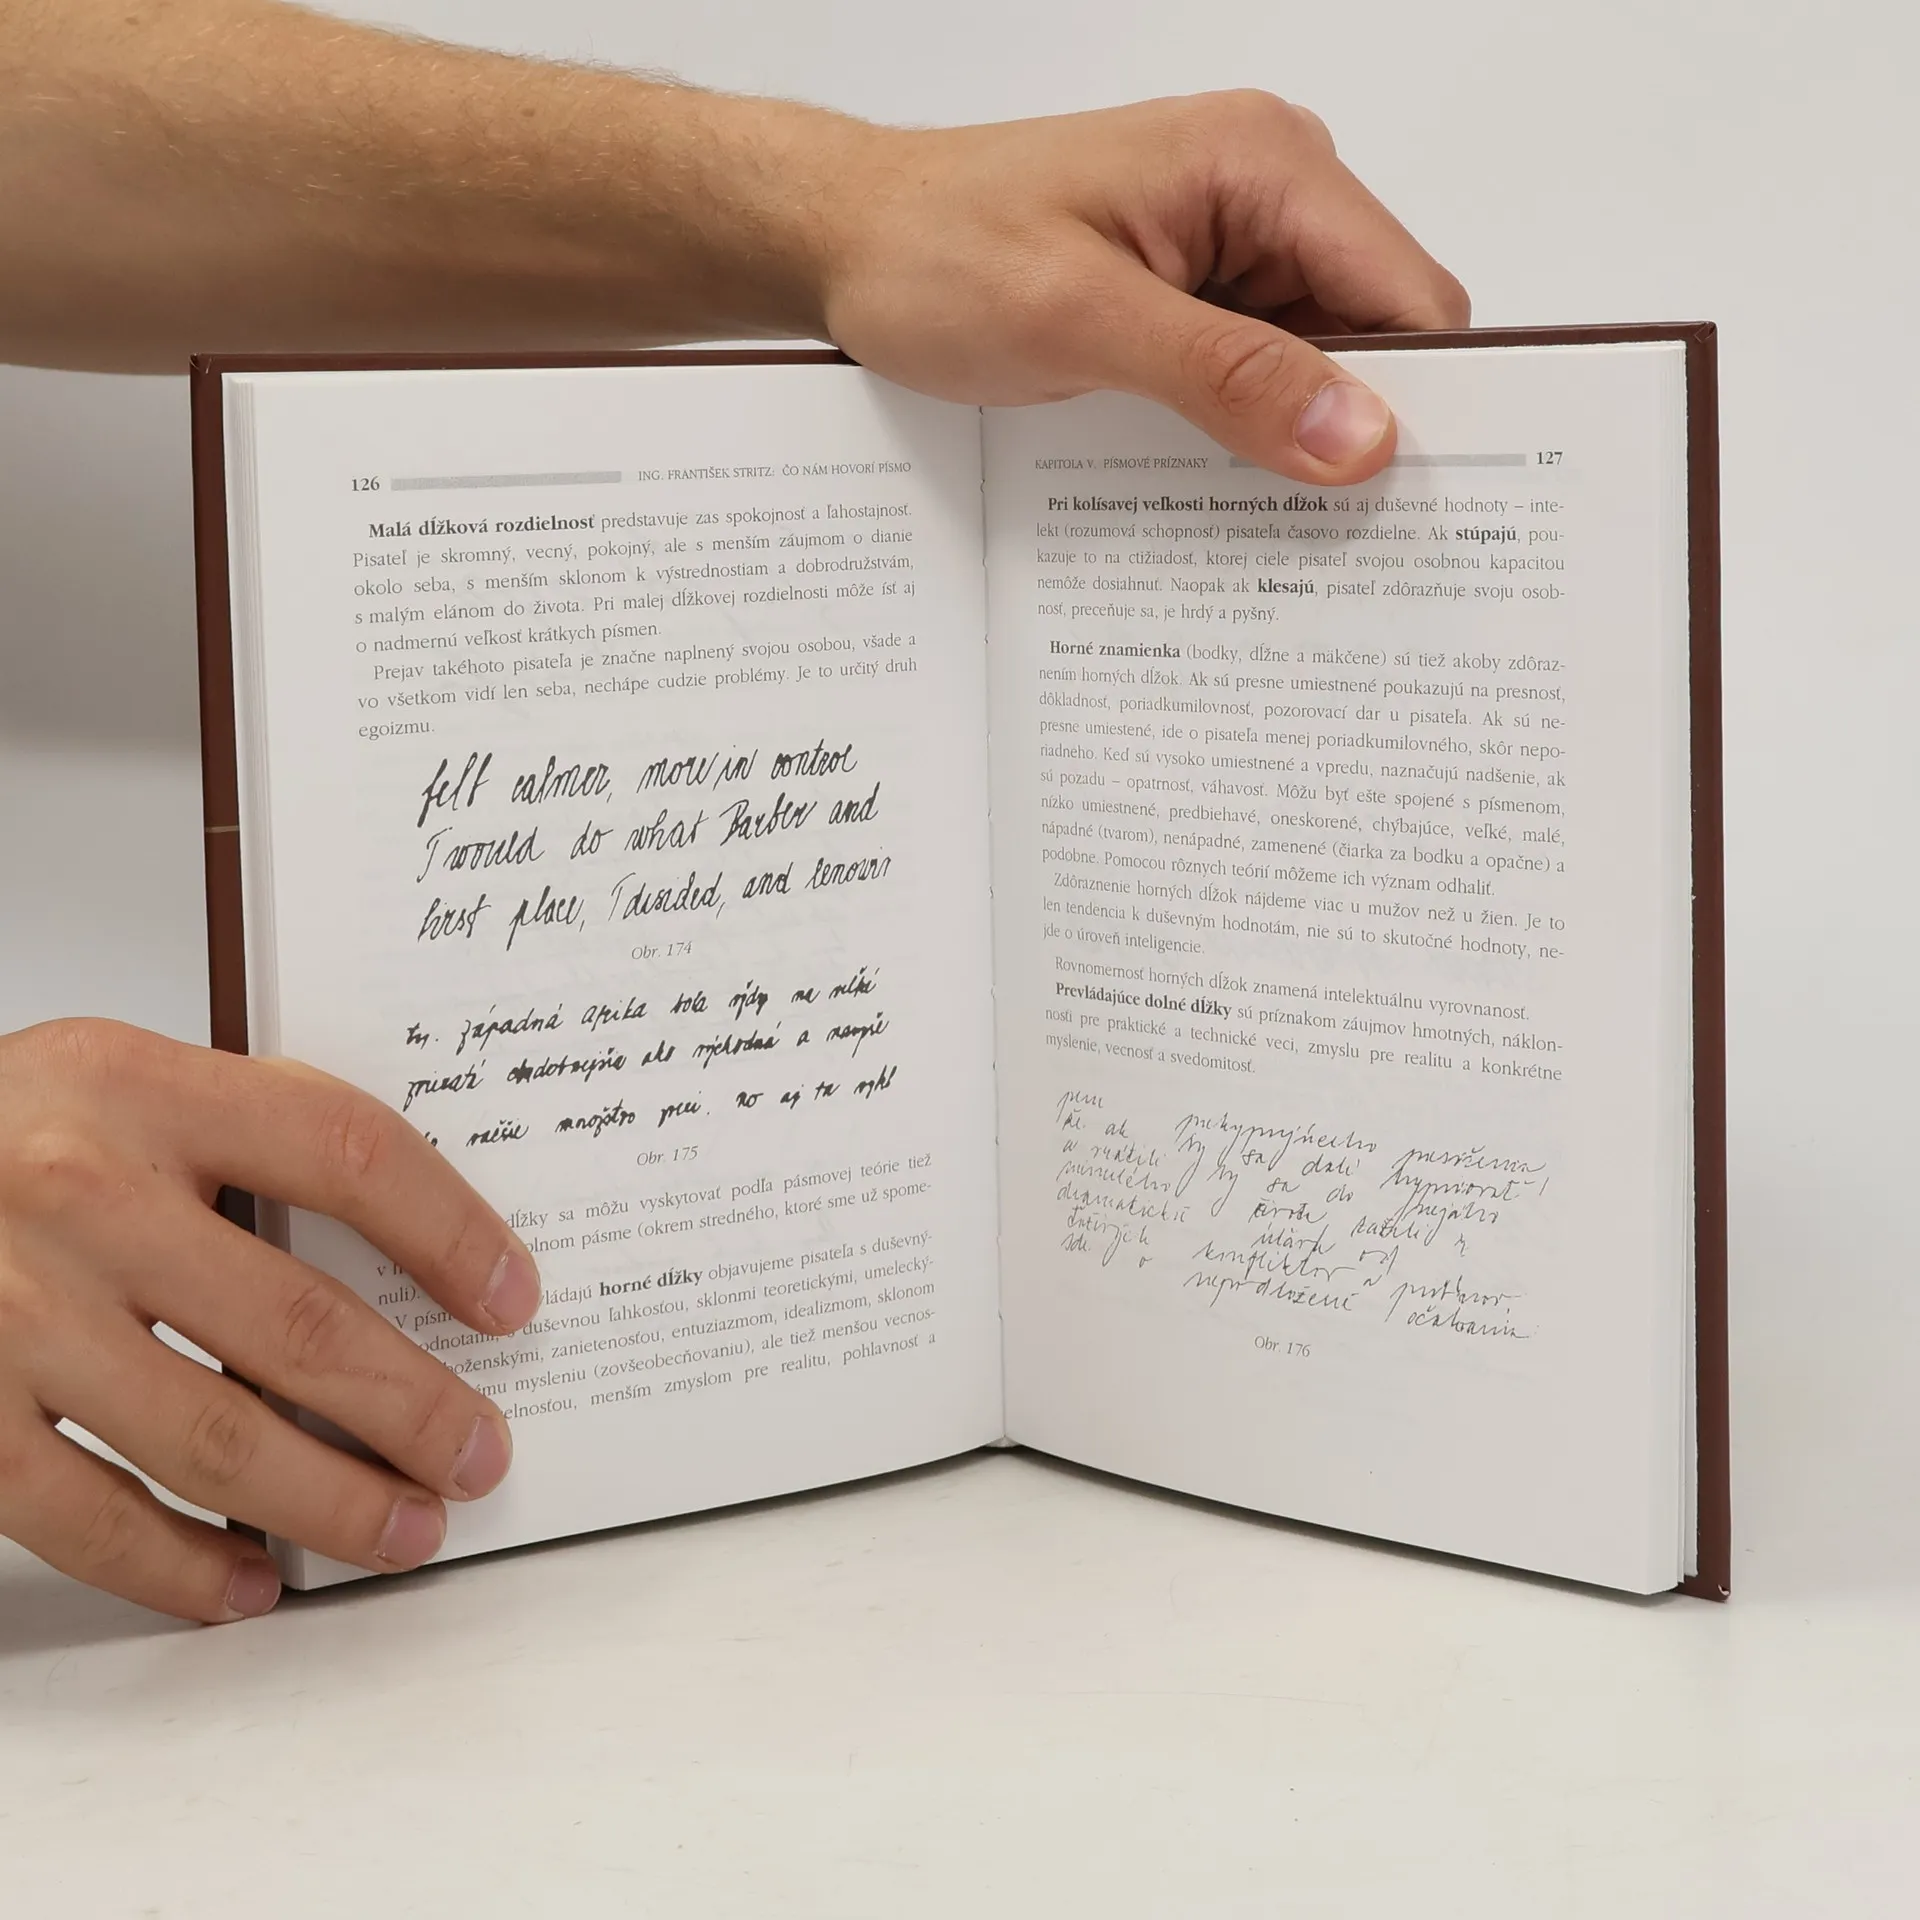 126 ING. FRANTIŠEK STRITZ: ČO NÁM HOVORÍ PÍSMO
Malá dĺžková rozdielnosť predstavuje zas spokojnosť a ľahostajnosť.
Pisateľ je skromný, vecný, pokojný, ale s menším záujmom o dianie
okolo seba, s menším sklonom k výstrednostiam a dobrodružstvám,
s malým elánom do života. Pri malej dĺžkovej rozdielnosti môže ísť aj
o nadmernú veľkosť krátkych písmen.
Prejav takéhoto pisateľa je značne naplnený svojou osobou, všade a
vo všetkom vidí len seba, nechápe cudzie problémy. Je to určitý druh
egoizmu.
felt calmer, more in control
I would do what Barber and
first place, I desided, and
Obr. 174
západná Afrika bola vždy na nižšie
ako východná a navyše
väčšie množstvo no aj ta
Obr. 175
dĺžky sa môžu vyskytovať podľa pásmovej teórie tiež
v olnom pásme (okrem stredného, ktoré sme už spome-
nuli).
vládajú horné dĺžky objavujeme pisateľa s duševný-
V písm duševnou ľahkosťou, sklonmi teoretickými, umelecký-
odnotami, oženskými, zanietenosťou, entuziazmom, idealizmom, sklonom
ému mysleniu (zovšeobecňovaniu), ale tiež menšou vecnos-
elnosťou, menším zmyslom pre realitu, pohlavnosť a
KAPITOLA V. PÍSMOVÉ PRÍZNAKY 127
Pri kolísavej veľkosti horných dĺžok sú aj duševné hodnoty – inte-
lekt (rozumová schopnosť) pisateľa časovo rozdielne. Ak stúpajú, pou-
kazuje to na ctižiadosť, ktorej ciele pisateľ svojou osobnou kapacitou
nemôže dosiahnuť. Naopak ak klesajú, pisateľ zdôrazňuje svoju osob-
nosť, preceňuje sa, je hrdý a pyšný.
Horné znamienka (bodky, dĺžne a mäkčene) sú tiež akoby zdôraz-
nením horných dĺžok. Ak sú presne umiestnené poukazujú na presnosť,
dôkladnosť, poriadkumilovnosť, pozorovací dar u pisateľa. Ak sú ne-
presne umiestené, ide o pisateľa menej poriadkumilovného, skôr nepo-
riadneho. Keď sú vysoko umiestnené a vpredu, naznačujú nadšenie, ak
sú pozadu – opatrnosť, váhavosť. Môžu byť ešte spojené s písmenom,
nízko umiestnené, predbiehavé, oneskorené, chýbajúce, veľké, malé,
nápadné (tvarom), nenápadné, zamenené (čiarka za bodku a opačne) a
podobne. Pomocou rôznych teórií môžeme ich význam odhaliť.
Zdôraznenie horných dĺžok nájdeme viac u mužov než u žien. Je to
len tendencia k duševným hodnotám, nie sú to skutočné hodnoty, ne-
jde o úroveň inteligencie.
Rovnomernosť horných dĺžok znamená intelektuálnu vyrovnanosť.
Prevládajúce dolné dĺžky sú príznakom záujmov hmotných, náklon-
nosti pre praktické a technické veci, zmyslu pre realitu a konkrétne
myslenie, vecnosť a svedomitosť.
Obr. 176